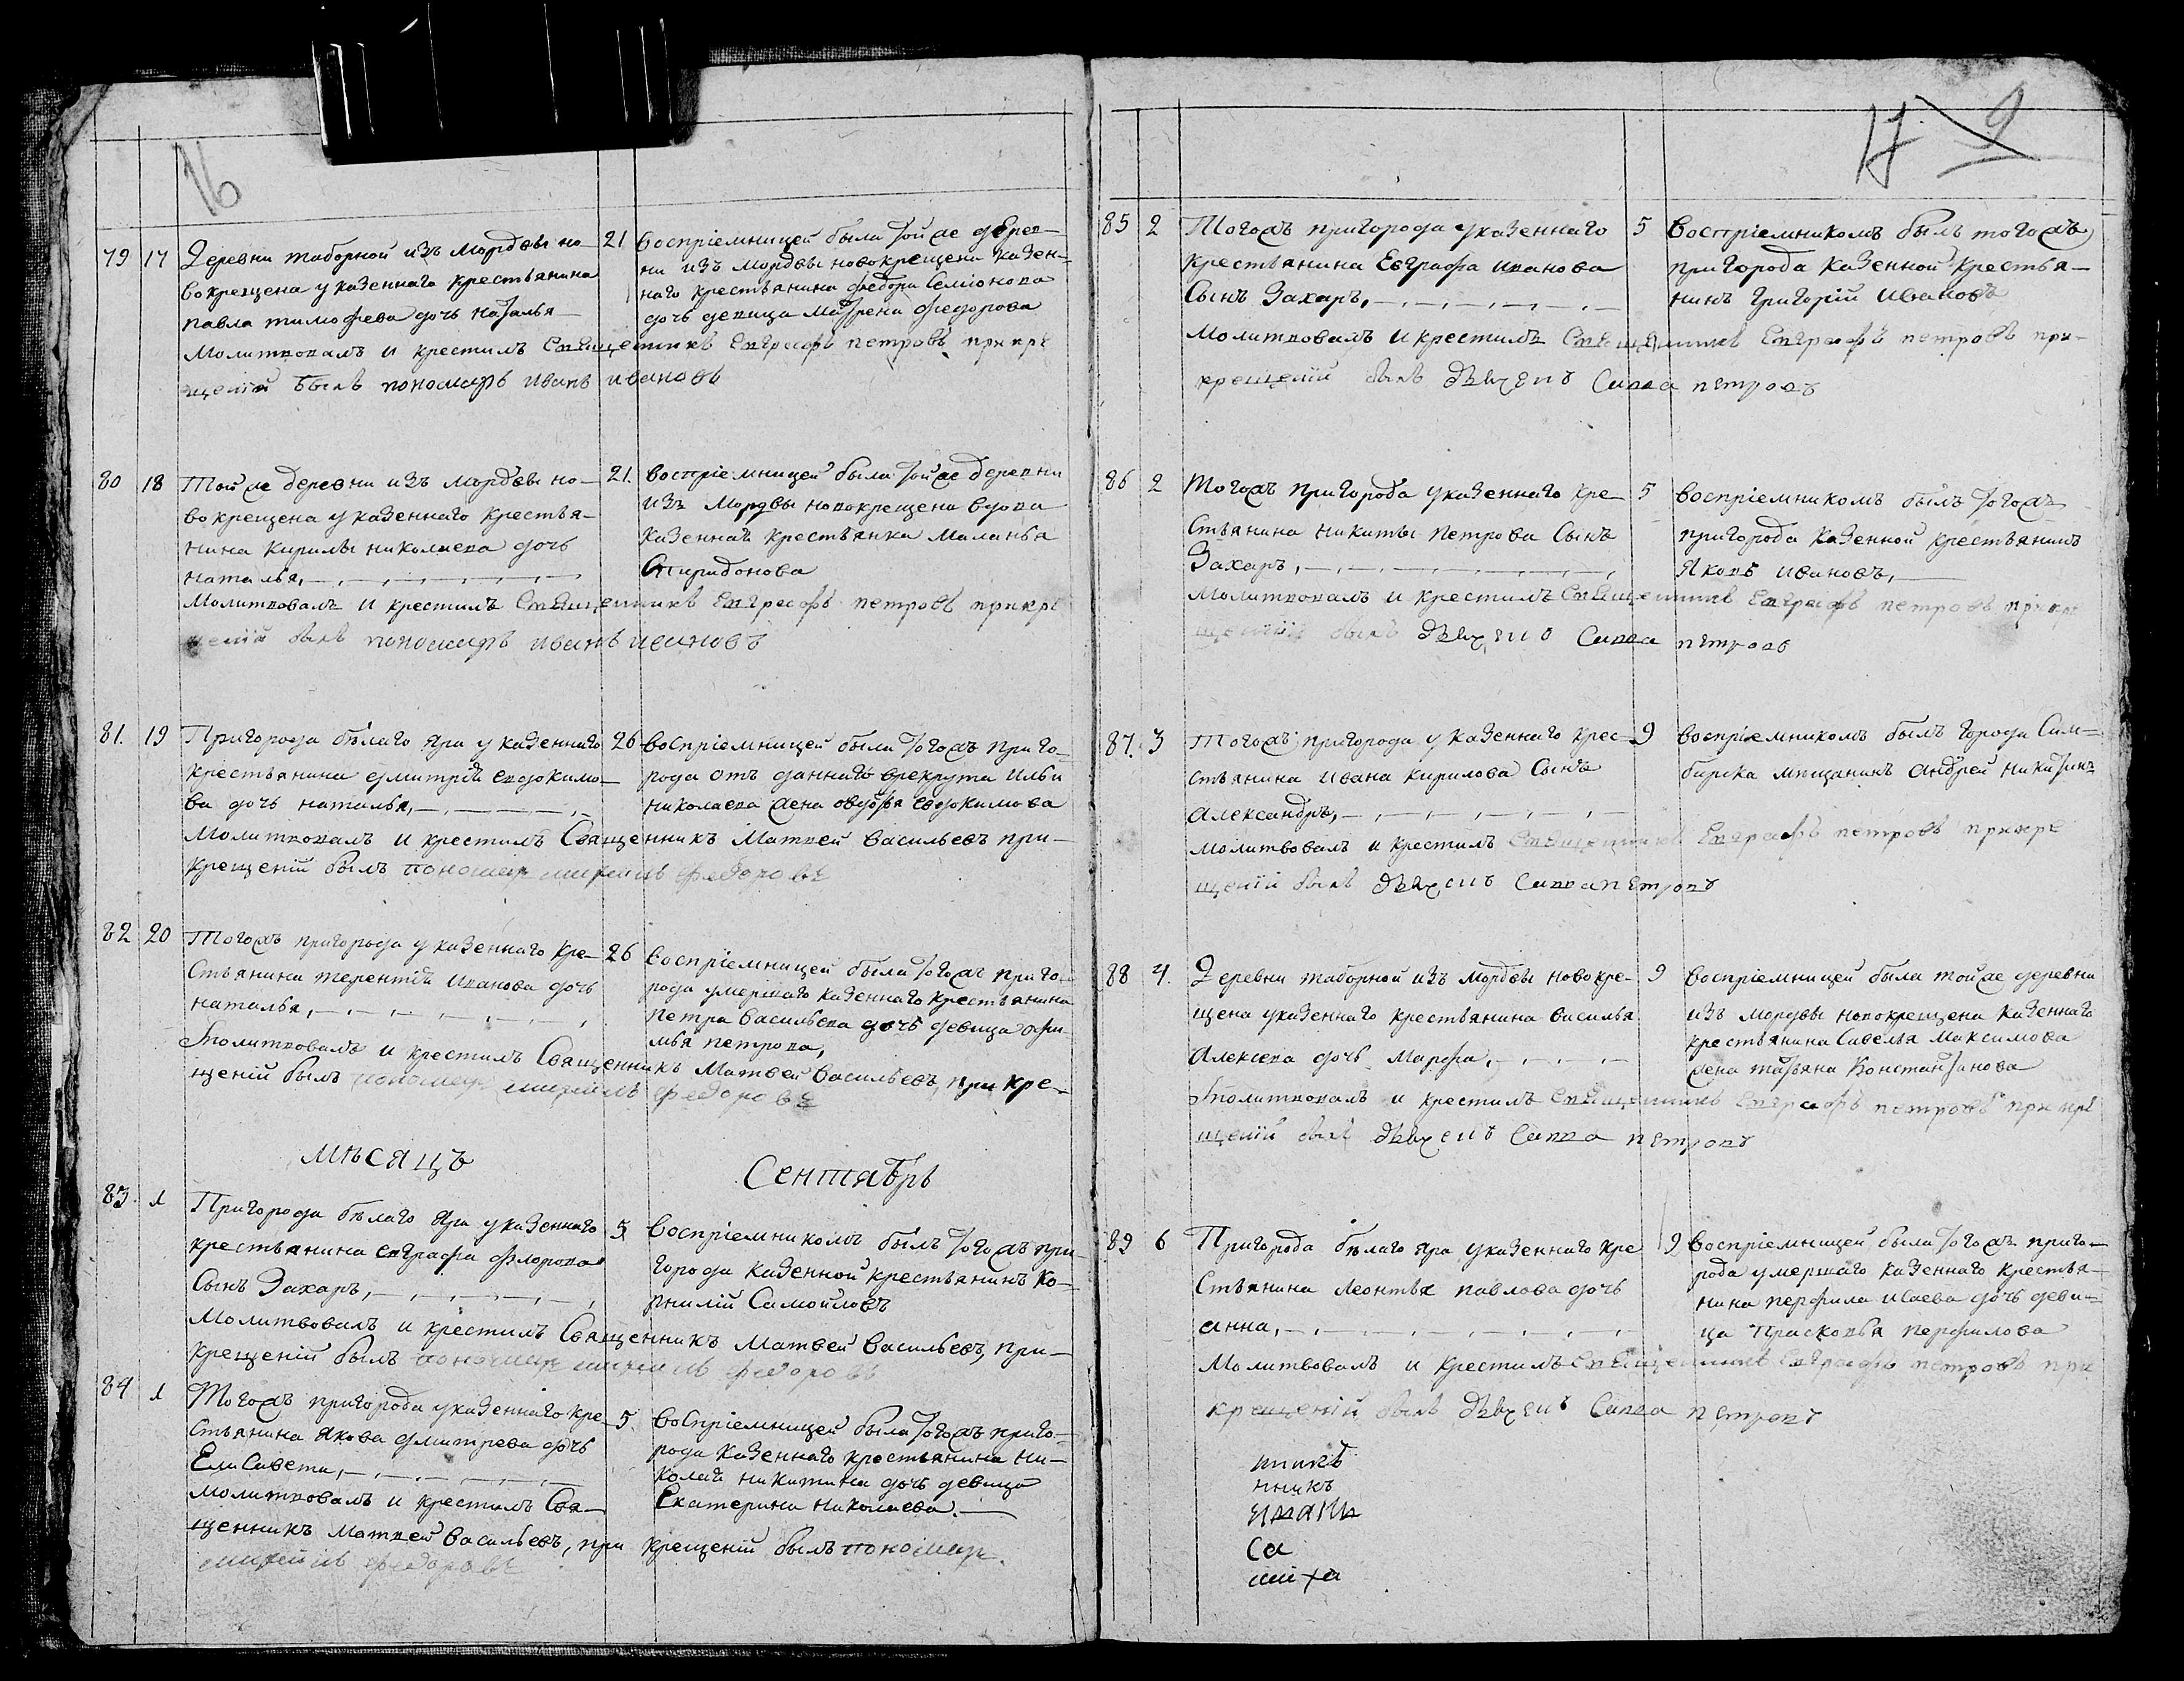 16
79 17 Деревни таборной изъ мордвы но-
вокрещена у казеннаго крестьянина
павла тимофеева дочь наталья
21 воспріемницей была тойже дерев-
ни изъ мордвы новокрещена казен-
наго крестьянина федора Семіонова
дочь девица матрена федорова
молитвовалъ и крестилъ Священникъ Евграфъ петровъ прикре
щеніи былъ пономарь иванъ ивановъ
80 18 Тойже деревни изъ мордвы но-
вокрещена у казеннаго крестья-
нина кирилы николаева дочь
наталья,
21. воспріемницей была тойже деревни
изъ мордвы новокрещена вдова
казеннаѧ крестьянка маланья
Спиридонова
молитвовалъ и крестилъ Священникъ Евграфъ петровъ прикре
щеніи былъ пономарь иванъ ивановъ
81. 19 Пригорода бѣлаго Яра у казеннаго
крестьянина дмитріѧ евдокимо-
ва дочь наталья,
26 воспріемницей была тогожъ приго-
рода отъ даннаго в рекруты ильи
николаева жена авдотья евдокимова
молитвовалъ и крестилъ Священникъ Матвей васильевъ при-
крещеніи былъ пономарь михаилъ федоровъ
82 20 Тогожъ пригорода у казеннаго кре-
стьянина терентіѧ иванова дочь
наталья,
26 воспріемницей была тогожъ приго-
рода умершаго казеннаго крестьянина
петра васильева дочь девица офи-
мья петрова,
молитвовалъ и крестилъ Священникъ Матвей васильевъ, при кре-
щеніи былъ пономарь михаилъ федоровъ
мѣсяцъ Сентябрь
83. 1 Пригорода бѣлаго Яра у казеннаго
крестьянина евграфа флорова
Сынъ Захаръ,
5 воспріемникомъ былъ тогожъ при-
города казенной крестьянинъ ко-
рнилій Самойловъ
молитвовалъ и крестилъ Священникъ Матвей васильевъ, при-
крещеніи былъ пономарь михаилъ федоровъ
84 1 Тогожъ пригорода у казеннаго кре-
стьянина Якова дмитрева дочь
Елисавета,
5 воспріемницей была тогожъ приго-
рода казеннаго крестьянина ни-
колаѧ никитина дочь девица
Екатерина николаева.
молитвовалъ и крестилъ Свя-
щенникъ матвей васильевъ, при крещеніи былъ пономарь
михаилъ федоровъ
17 9
85 2 Тогожъ пригорода у казеннаго
крестьянина Евграфа иванова
Сынъ Захаръ,
5 воспріемникомъ былъ тогожъ
пригорода казенной крестья-
нинъ григорій ивановъ
молитвовалъ и крестилъ Священникъ Евграфъ петровъ при-
крещеніи былъ дьячекъ Савва петровъ
86 2 Тогожъ пригорода у казеннаго кре-
стьянина никиты петрова Сынъ
Захаръ,
5 воспріемникомъ былъ тогожъ
пригорода казенной крестьянинъ
Яковъ ивановъ,
молитвовалъ и крестилъ Священникъ Евграфъ петровъ прикре
щеніи былъ дьячекъ Савва петровъ
87. 3 Тогожъ пригорода у казеннаго крес-
стьянина ивана кирилова Сынъ
александръ,
9 воспріемникомъ былъ города Сим-
бирска мещанинъ андрей никитинъ
молитвовалъ и крестилъ Священникъ Евграфъ петровъ прикре
щеніи былъ дьячекъ Савва петровъ
88 4. Деревни таборной изъ мордвы новокре-
щена у казеннаго крестьянина василья
алексева дочь марфа,
9 воспріемницей была тойже деревни
изъ мордвы новокрещена казеннаго
крестьянина Савелья максимова
жена татьяна Константинова
молитвовалъ и крестилъ Священникъ Евграфъ петровъ прикре
щеніи былъ дьячекъ Савва петровъ
89 6 Пригорода бѣлаго яра у казеннаго кре
стьянина леонтья павлова дочь
анна,
9 воспріемницей была тогожъ приго-
рода умершаго казеннаго крестья-
нина перфила исаева дочь деви-
ца Прасковья перфилова
молитвовалъ и крестилъ Священникъ Евграфъ петровъ при
крещеніи былъ дьячекъ Савва петровъ
никъ
са
миха